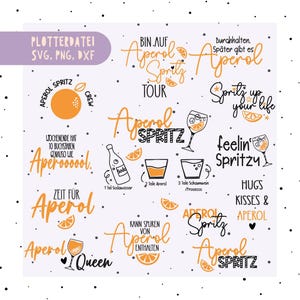 PLOTTERDATEI
SVG, PNG, DXF
BIN AUF
Aperol
Spritz
TOUR
durchhalten.
Später gibt es
Aperol
APEROL SPRITZ
CREW
Spritz up
your life
Aperol
SPRITZ
WOCHENENDE HAT
10 BUCHSTABEN
GENAUSO WIE
Aperooool.
feelin'
Spritzy
1 Teil Sodawasser
2 Teile Aperol
3 Teile Schaumwein
/Prosecco
ZEIT FÜR
Aperol
HUGS
KISSES &
APEROL
KANN SPUREN
VON
Aperol
ENTHALTEN
APEROL
Spritz
Aperol
Queen
Aperol
SPRITZ